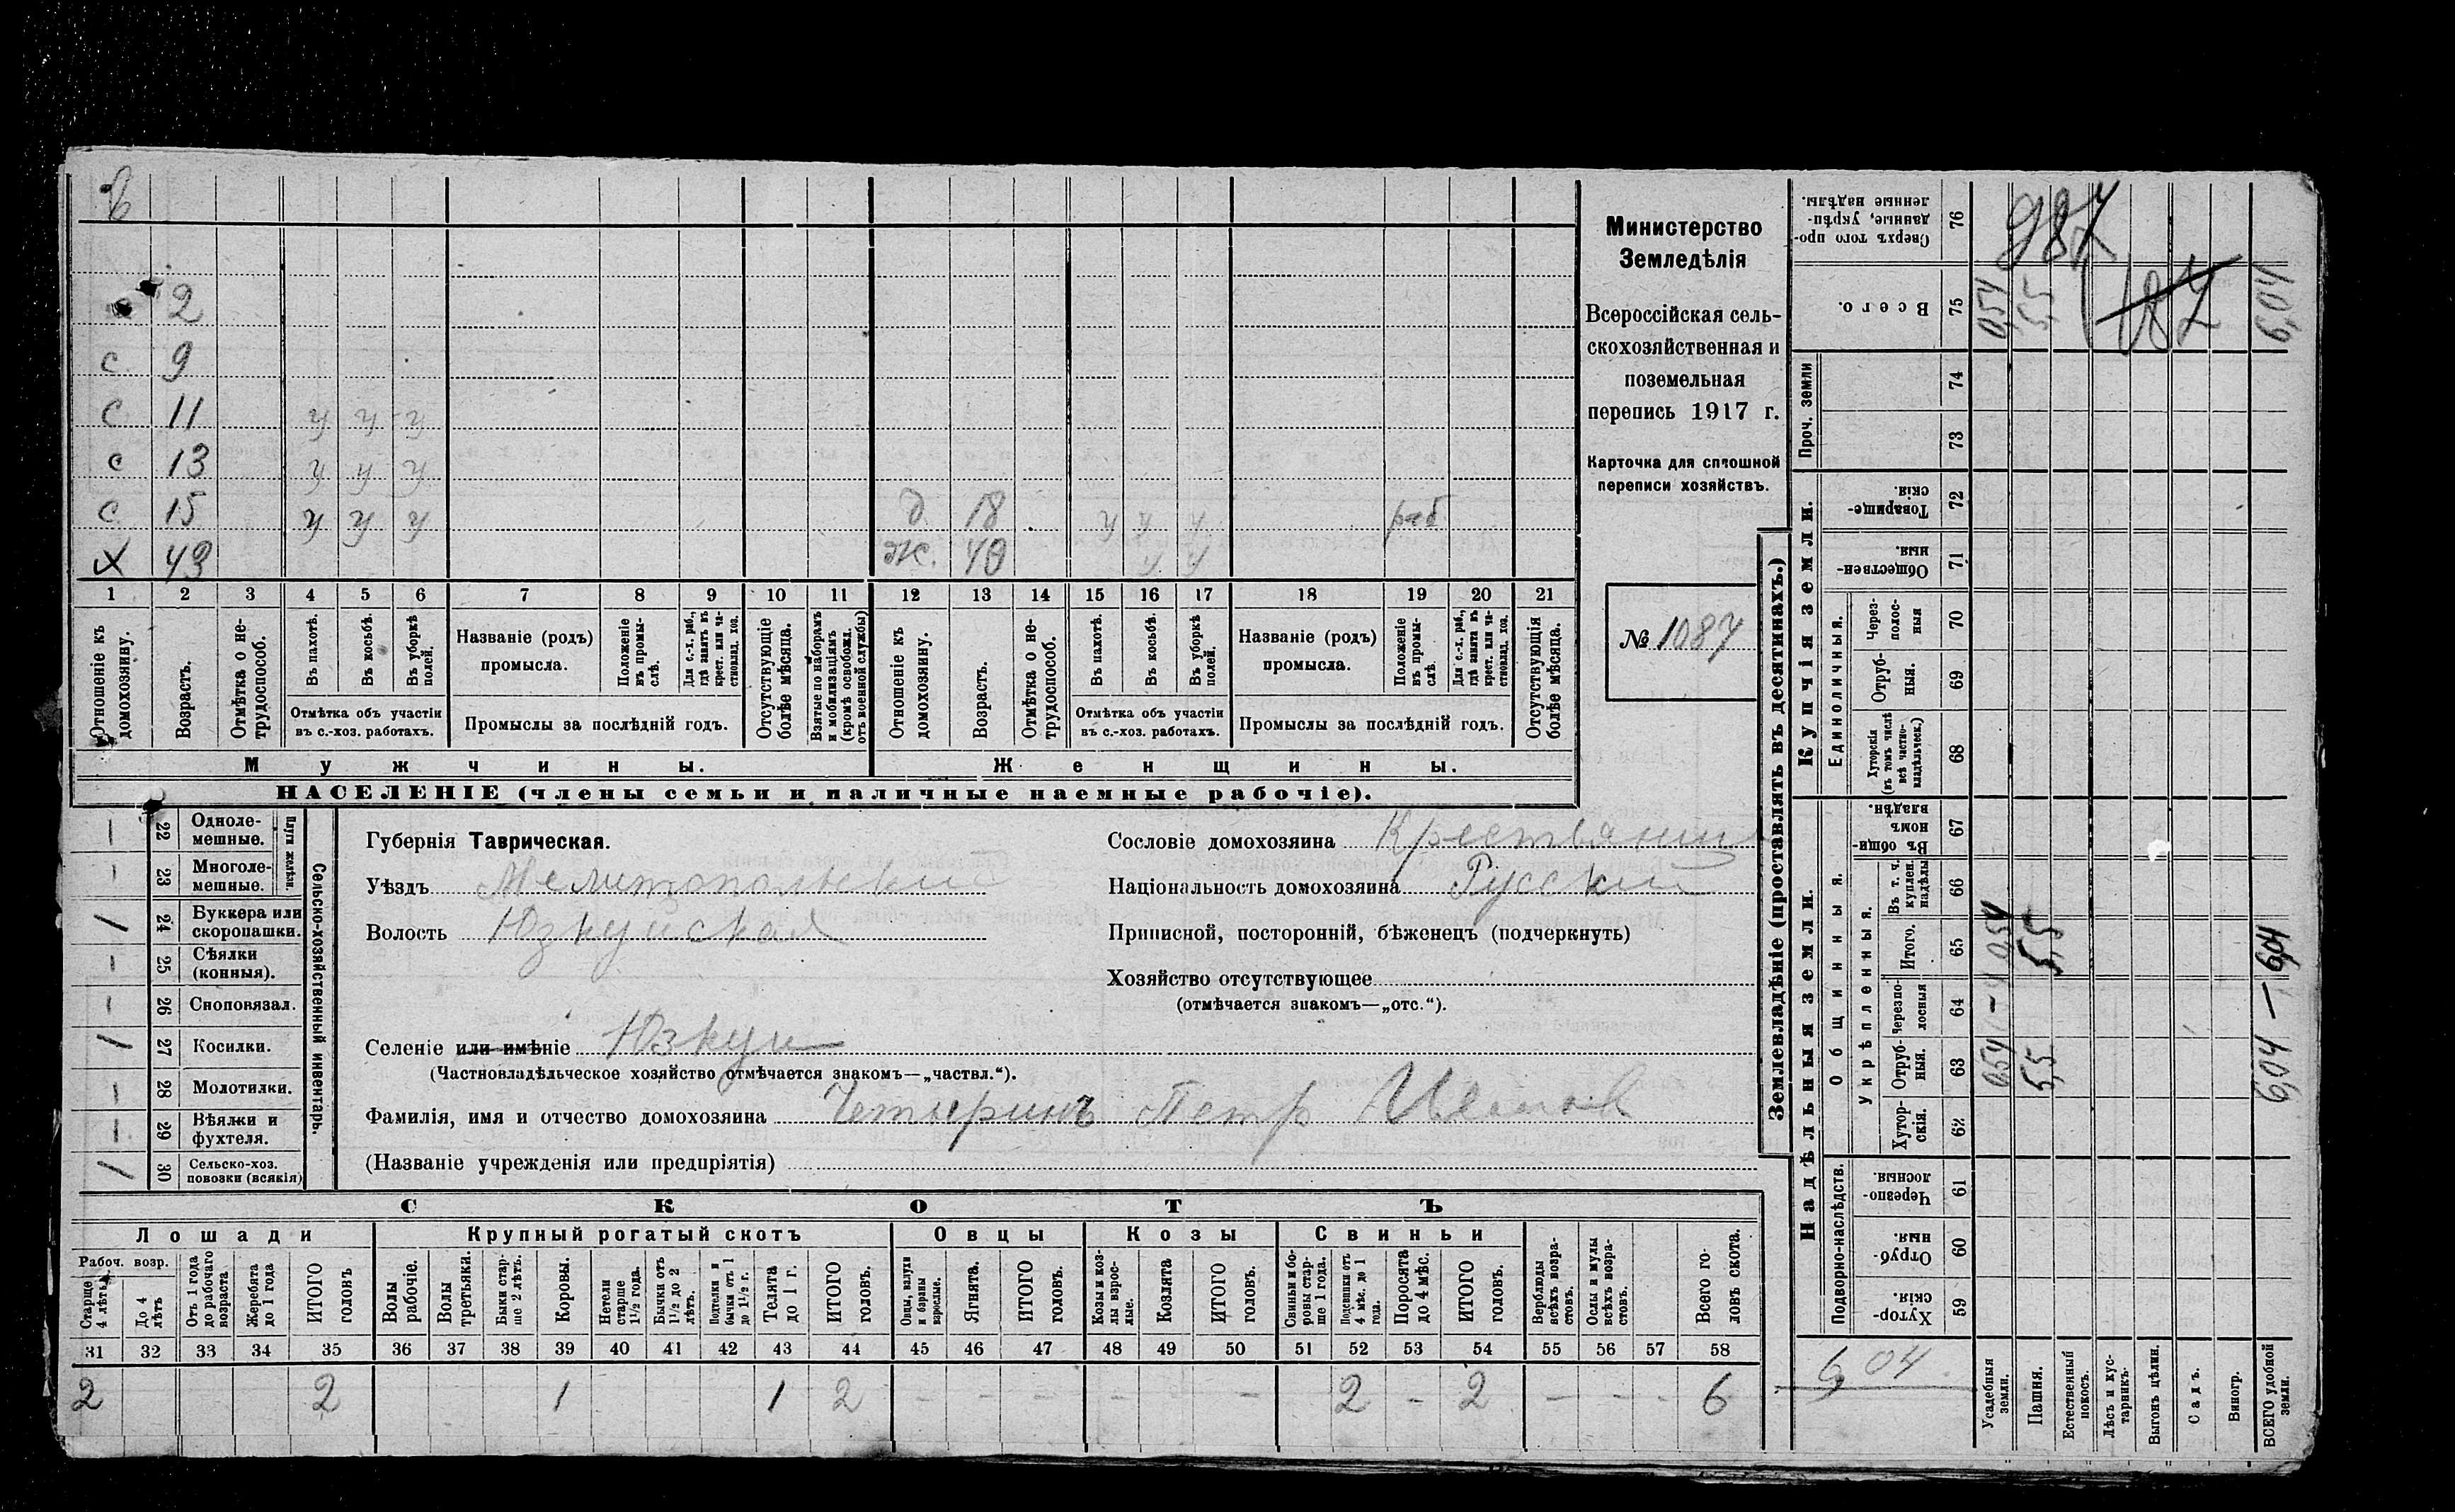 6
2
с 9
с 11 у у у
с 13 у у у
с 15 у у у д 18 у у у раб
х 43 ж. 40 у у
1 2 3 4 5 6 7 8 9 10 11 12 13 14 15 16 17 18 19 20 21
Отношеніе къ домохозяину.
Возрастъ.
Отмѣтка о нетрудоспособ.
Въ пахотѣ.
Въ косьбѣ.
Въ уборкѣ полей.
Отмѣтка объ участіи въ с.-хоз. работахъ.
Названіе (родъ) промысла.
Положеніе въ промыслѣ.
Для с.-х. раб., гдѣ занятъ въ крест. или частновлад. хоз.
Промыслы за послѣдній годъ.
Отсутствующіе болѣе мѣсяца.
Взятые по наборамъ и мобилизаціямъ (кромѣ освобожд. отъ военной службы)
Отношеніе къ домохозяину.
Возрастъ.
Отмѣтка о нетрудоспособ.
Въ пахотѣ.
Въ косьбѣ.
Въ уборкѣ полей.
Отмѣтка объ участіи въ с.-хоз. работахъ.
Названіе (родъ) промысла.
Положеніе въ промыслѣ.
Для с.-х. раб., гдѣ занята въ крест. или частновлад. хоз.
Промыслы за послѣдній годъ.
Отсутствующія болѣе мѣсяца.
Мужчины. Женщины.
НАСЕЛЕНІЕ (члены семьи и наличные наемные рабочіе).
Министерство
Земледѣлія
Всероссійская сель-
скохозяйственная и
поземельная
перепись 1917 г.
Карточка для сплошной
переписи хозяйствъ.
№ 1087
Сельско-хозяйственный инвентарь.
Плуги желѣзн.
— 22 Одноле-мешные.
— 23 Многоле-мешные.
/ 24 Буккера или скоропашки.
— 25 Сѣялки (конныя).
— 26 Сноповязал.
/ 27 Косилки.
— 28 Молотилки.
— 29 Вѣялки и фухтеля.
/ 30 Сельско-хоз. повозки (всякія)
Губернія Таврическая.
Уѣздъ Мелитопольский
Волость Юзкуйская
Селеніе или имѣніе Юзкуи
(Частновладѣльческое хозяйство отмѣчается знакомъ—„частвл.“).
Фамилія, имя и отчество домохозяина Четыринъ Петр Иванов
(Названіе учрежденія или предпріятія)
Сословіе домохозяина Крестьянин
Національность домохозяина Русский
Приписной, посторонній, бѣженецъ (подчеркнуть)
Хозяйство отсутствующее
(отмѣчается знакомъ—„отс.“).
СКОТЪ
Лошади Крупный рогатый скотъ Овцы Козы Свиньи
Рабоч. возр.
Старше 4 лѣтъ
До 4 лѣтъ
Отъ 1 года до рабочаго возраста
Жеребята до 1 года
ИТОГО головъ
Волы рабочіе.
Волы третьяки.
Быки старше 2 лѣтъ.
Коровы.
Нетели старше 1½ года.
Бычки отъ 1½ до 2 лѣтъ.
Подтелки и бычки отъ 1 до 1½ г.
Телята до 1 г.
ИТОГО головъ.
Овцы, валухи и бараны взрослые.
Ягнята.
ИТОГО головъ.
Козы и козлы взрослые.
Козлята
ИТОГО головъ.
Свиньи и боровы старше 1 года.
Подсвинки отъ 4 мѣс. до 1 года.
Поросята до 4 мѣс.
ИТОГО головъ.
Верблюды всѣхъ возрастовъ.
Ослы и мулы всѣхъ возрастовъ.
Всего головъ скота.
31 32 33 34 35 36 37 38 39 40 41 42 43 44 45 46 47 48 49 50 51 52 53 54 55 56 57 58
2 2 1 1 2 — — — — — 2 — 2 — — - 6
Землевладѣніе (проставлять въ десятинахъ.)
Купчія земли.
Надѣльныя земли.
Сверхъ того проданные, укрѣпленные надѣлы. 76
Всего. 75 0,54 5,5 6,04
987
187
Проч. земли 74
73
Товарищескія. 72
Общественныя. 71
Единоличныя.
Черезполосныя 70
Отрубныя. 69
Хуторскія (въ томъ числѣ всѣ частновладѣльческ.) 68
Общинныя.
Въ общинномъ владѣн. 67
Укрѣпленныя.
Въ т. ч. куплен. надѣлы 66
Итого. 65 0,54 5,5 6,04
Черезполосныя 64
Отрубныя. 63 0,54 5,5 6,04
Хуторскія. 62
Подворно-наслѣдств.
Черезполосныя. 61
Отрубныя. 60
Хуторскія. 59
6,04
Усадебныя земли.
Пашня.
Естественный покосъ.
Лѣсъ и кустарникъ.
Выгонъ цѣлин.
Садъ.
Виногр.
ВСЕГО удобной земли.